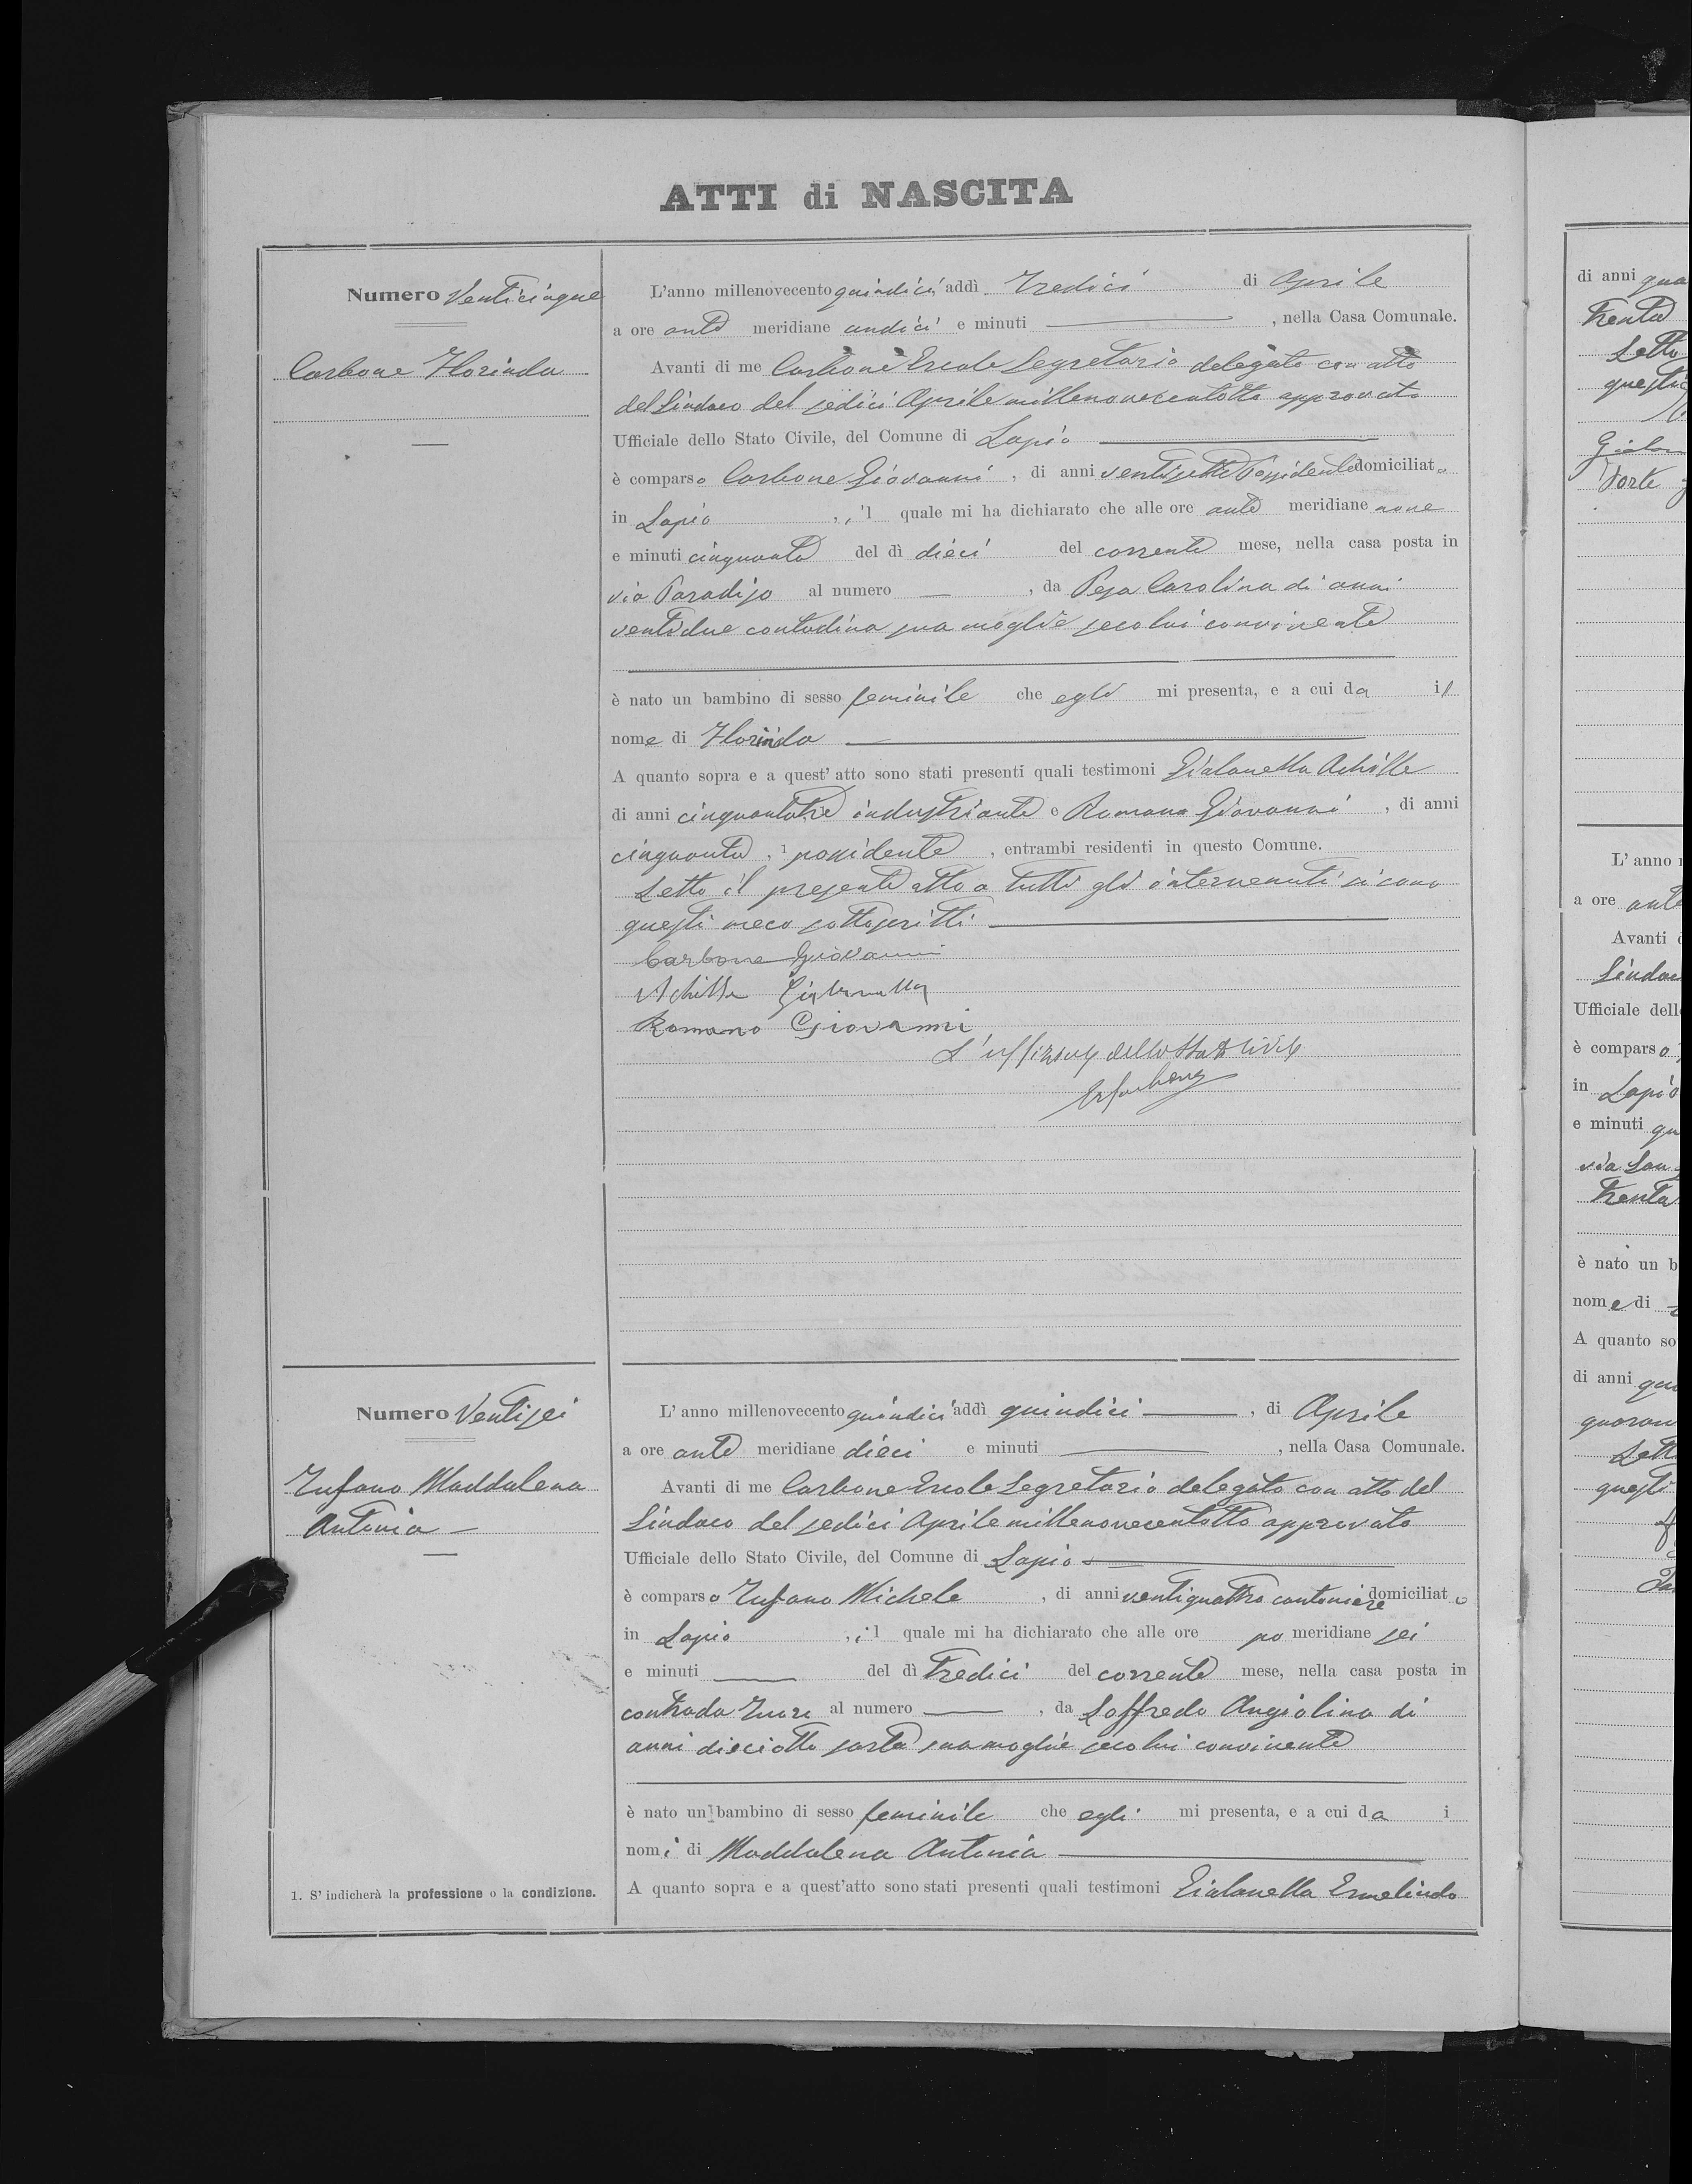 ATTI di NASCITA
Numero Venticinque
Carbone Florinda
L'anno millenovecento quindici addì Tredici di Aprile
a ore ante meridiane undici e minuti , nella Casa Comunale.
Avanti di me Carbone Ercole Segretario delegato con atto
del Sindaco del sedici Aprile millenovecentotto approvato
Ufficiale dello Stato Civile, del Comune di Lapio
è comparso Carbone Giovanni , di anni ventisette Possidente domiciliato
in Lapio , il quale mi ha dichiarato che alle ore ante meridiane nove
e minuti cinquanta del dì dieci del corrente mese, nella casa posta in
via Paradiso al numero — , da Pesa Carolina di anni
ventidue contadina sua moglie seco lui convivente
è nato un bambino di sesso feminile che egli mi presenta, e a cui da il
nome di Florinda
A quanto sopra e a quest' atto sono stati presenti quali testimoni Gialanella Achille
di anni cinquantatre industriante e Romano Giovanni , di anni
cinquanta , 1 possidente , entrambi residenti in questo Comune.
Letto il presente atto a tutti gli intervenuti si sono
questi meco sottoscritti
Carbone Giovanni
Achille Gialanella
Romano Giovanni
L'uffiziale dello Stato Civile
Numero Ventisei
Tufano Maddalena
Antonia —
L' anno millenovecento quindici addì quindici , di Aprile
a ore ante meridiane dieci e minuti , nella Casa Comunale.
Avanti di me Carbone Ercole Segretario delegato con atto del
Sindaco del sedici Aprile millenovecentotto approvato
Ufficiale dello Stato Civile, del Comune di Lapio
è comparso Tufano Michele , di anni ventiquattro cantoniere domiciliato
in Lapio , il quale mi ha dichiarato che alle ore po meridiane sei
e minuti del dì Tredici del corrente mese, nella casa posta in
contrada al numero , da Loffredo Angiolina di
anni diciotto sarta sua moglie seco lui convivente
è nato un bambino di sesso feminile che egli mi presenta, e a cui da i
nomi di Maddalena Antonia
A quanto sopra e a quest'atto sono stati presenti quali testimoni Gialanella Ermelindo
1. S' indicherà la professione o la condizione.
di anni
Trenta
Letto
questi
L' anno
a ore ante
Avanti
Sindaco
Ufficiale dell
è comparso
in Lapio
e minuti
via San
Trenta
è nato un b
nome di
A quanto so
di anni
quaran
Lett
questi